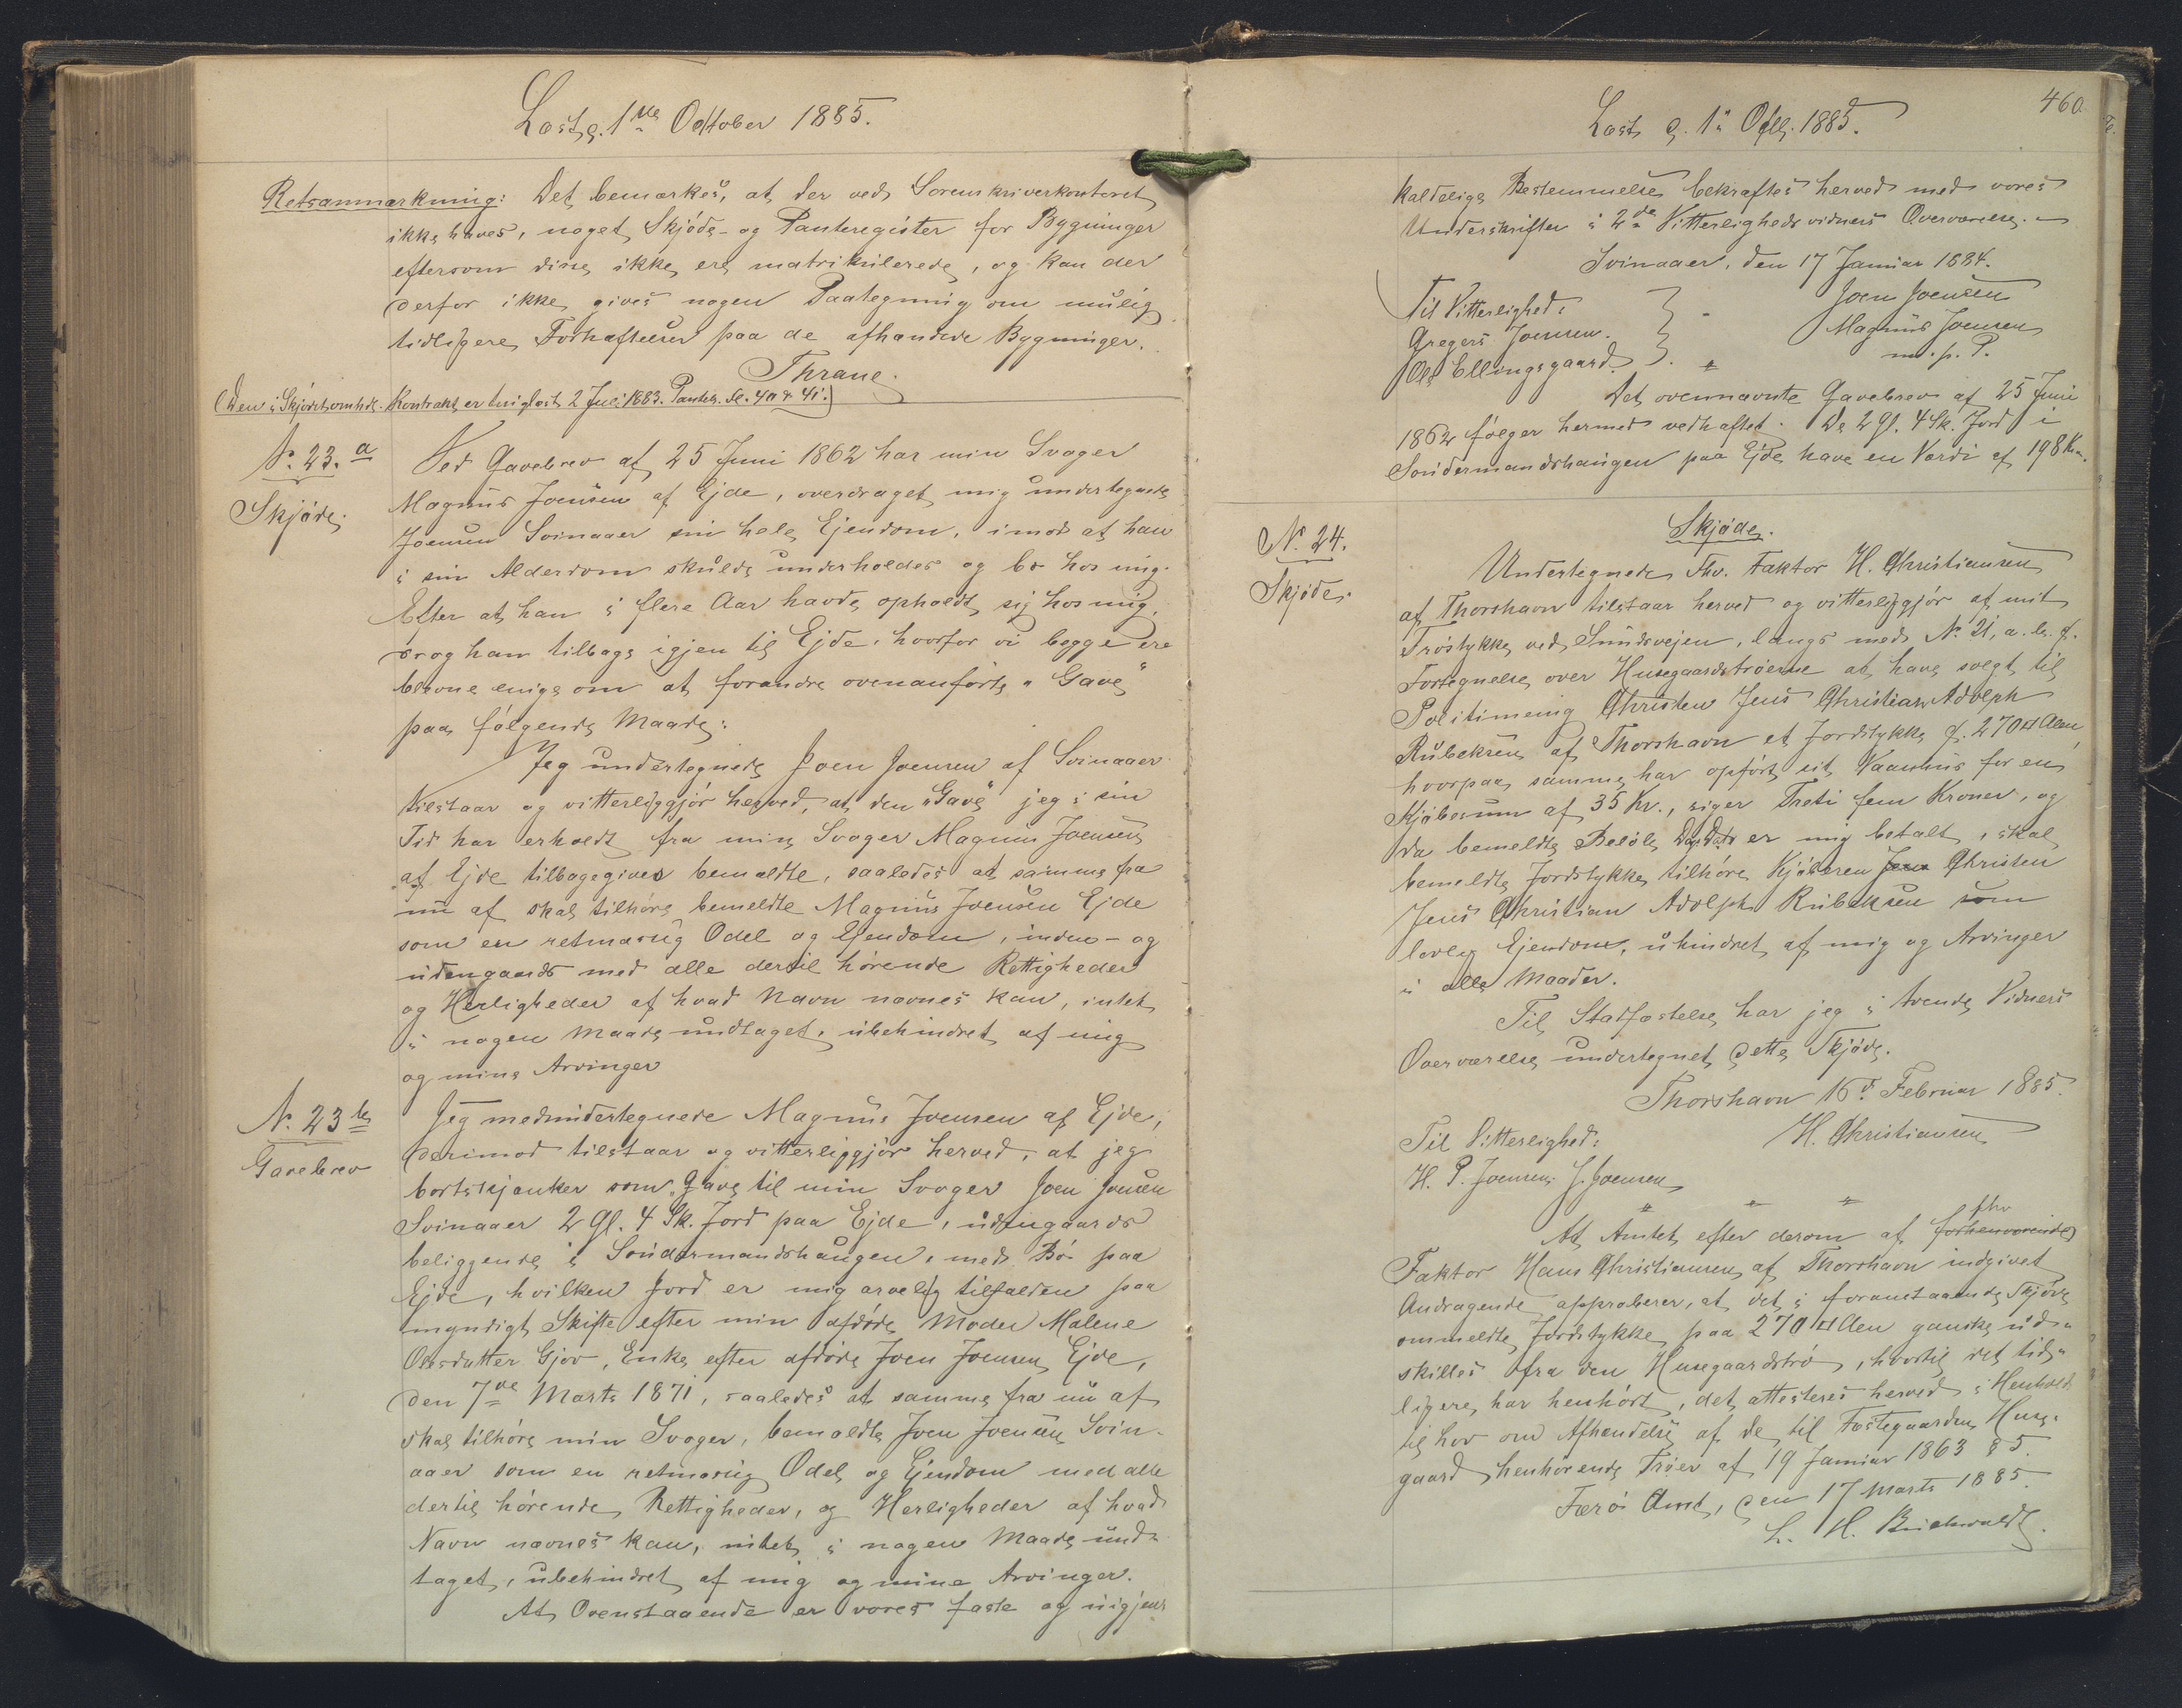 Læst d. 1ste October 1885.
Retsanmærkning: Det bemærkes, at der ved Sorenskriverkontoret
ikke haves, noget Skjøde- og Panteregister for Bygninger
eftersom disse ikke ere matrikulerede, og kan der
derfor ikke gives nogen Paategning om mulig
tidligere Forhæftelser paa de afhændede Bygninger.
Thrane.
(Den i Skjødet omhdl. Kontrakt er tinglæst 2 Juli 1883. Pantebr. Fl. 40 & 41.)
No. 23. a
Skjøde.
Ved Gavebrev af 25 Juni 1862 har min Svoger
Magnus Joensen af Ejde, overdraget mig undertegnede
Joensen Svinaaer sin hele Ejendom, imod at han
i sin Alderdom skulde underholdes og bo hos mig.
Efter at han i flere Aar havde opholdt sig hos mig,
drog han tilbage igjen til Ejde, hvorfor vi begge ere
blevne enige om at forandre ovenanførte "Gave"
paa følgende Maade:
Jeg undertegnede Joen Joensen af Svinaaer
tilstaar og vitterliggjør herved, at den "Gave" jeg i sin
Tid har erholdt fra min Svoger Magnus Joensen
af Ejde tilbagegives bemældte, saaledes at samme fra
nu af skal tilhøre bemeldte Magnus Joensen Ejde
som en retmæssig Odel og Ejendom, inden- og
udengaards med alle dertil hørende Rettigheder
og Herligheder af hvad Navn nævnes kan, intet
i nogen Maade undtaget, ubehindret af mig
og mine Arvinger
No. 23 b
Gavebrev
Jeg medundertegnede Magnus Joensen af Ejde,
derimod tilstaar og vitterliggjør herved, at jeg
bortskjænker som "Gave" til min Svoger Joen Joensen
Svinaaer 2 Gl. 4 Sk. Jord paa Ejde, udengaards
beliggende i Søndermandshaugen, med Bø paa
Ejde, hvilken Jord er mig arvelig tilfalden paa
myndigt Skifte efter min afdøde Moder Malene
Olesdatter Gjov, Enke efter afdøde Joen Joensen Ejde,
den 7de Marts 1871, saaledes at samme fra nu af
skal tilhøre min Svoger, bemældte Joen Joensen Svin-
aaer som en retmæssig Odel og Ejendom med alle
dertil hørende Rettigheder, og Herligheder af hvad
Navn nævnes kan, intet i nogen Maade und-
taget, ubehindret af mig og mine Arvinger.
At Ovenstaaende er vores faste og uigjen-
460
Læst d. 1" Octbr. 1885.
kaldelige Bestemmelse bekræftes herved med vores
Underskrifter i 2de Vitterlighedsvidners Overværelse.
Svinaaer, den 17 Januar 1884.
Til Vitterlighed: Joen Joensen
Gregers Joensen. Magnus Joensen
Ole Ellingsgaard. m. p. P.
Det ovennævnte Gavebrev af 25 Juni
1862 følger hermed vedhæftet. De 2 Gl. 4 Sk. Jord i
Søndermandshaugen paa Ejde have en Værdi af 198 Kr.
No. 24.
Skjøde.
Skjøde.
Undertegnede Fhv. Faktor H. Christiansen
af Thorshavn tilstaar herved og vitterliggjør af mit
Trøstykke ved Sundsvejen, langs med No. 21, a. b. f.
Fortegnelse over Husegaardstrøerne at have solgt til
Politimening Christen Jens Christian Adolph
Rubeksen af Thorshavn et Jordstykke g. 270 □ Alen,
hvorpaa samme har opført sit Vaanhus for en
Kjøbesum af 35 Kr., siger Treti fem Kroner, og
da bemeldte Beløb Dags Dato er mig betalt, skal
bemeldte Jordstykke tilhøre Kjøberen Jens Christen
Jens Christian Adolph Rubeksen som
lovlig Ejendom, uhindret af mig og Arvinger
i alle Maader.
Til Stadfæstelse har jeg i tvende Vidners
Overværelse undertegnet dette Skjøde.
Thorshavn 16d Februar 1885.
Til Vitterlighed: H. Christiansen
H. P. Joensen, J. Joensen
fhv
At Amtet efter derom af forhenværende
Faktor Hans Christiansen af Thorshavn indgivet
Andragende approberer, at det i foranstaaende Skjøde
ommeldte Jordstykke paa 270 □ Alen ganske ud-
skilles fra den Husegaardstrø, hvortil det tid-
ligere har henhørt, det attesteres herved i Henhold
til Lov om Afhændelse af de til Fæstegaarden Huse-
gaard henhørende Trøer af 19 Januar 1863 § 5.
Færø Amt, den 17 Marts 1885.
L. H. Buchwaldt.